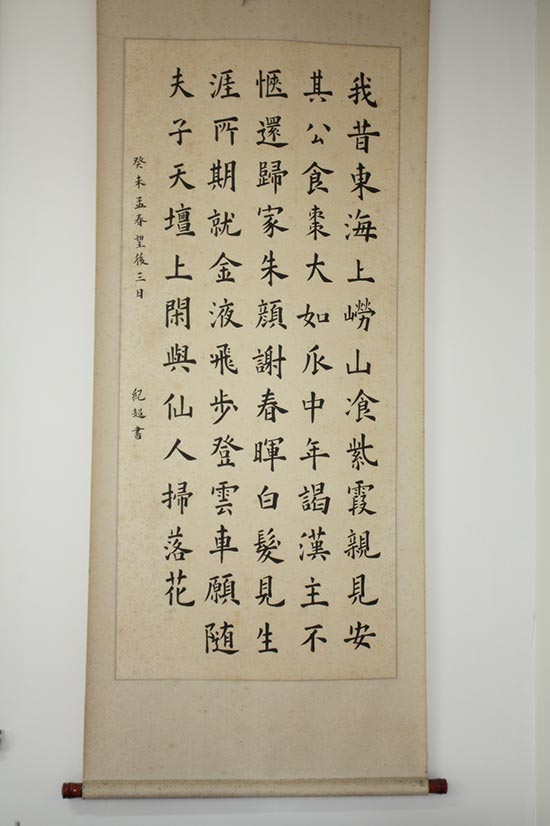 我昔東海上嶗山飡紫霞親見安
其公食棗大如瓜中年謁漢主不
愜還歸家朱顏謝春暉白髮見生
涯所期就金液飛步登雲車願随
夫子天壇上閑與仙人掃落花
癸未孟春望後三日
紀超書